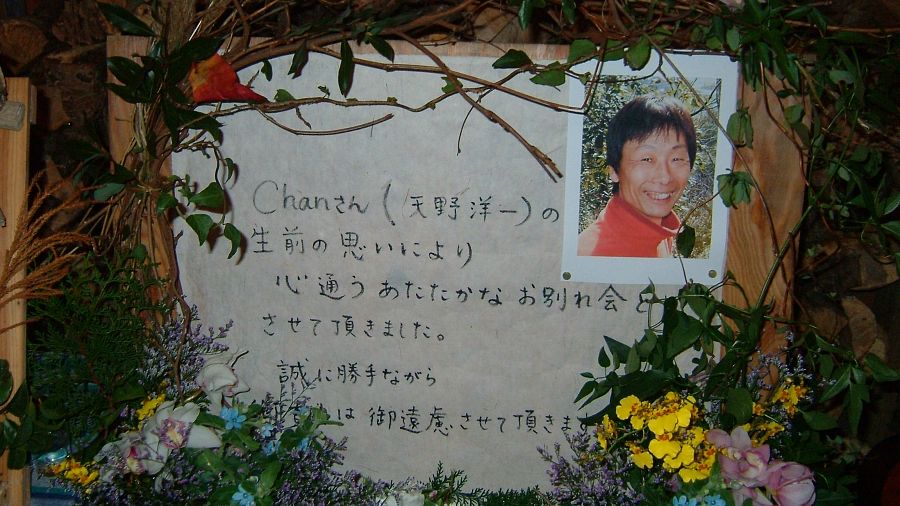 Chanさん（天野洋一）の
生前の思いにより
心通うあたたかなお別れ会を
させて頂きました。
誠に勝手ながら
は御遠慮させて頂きます